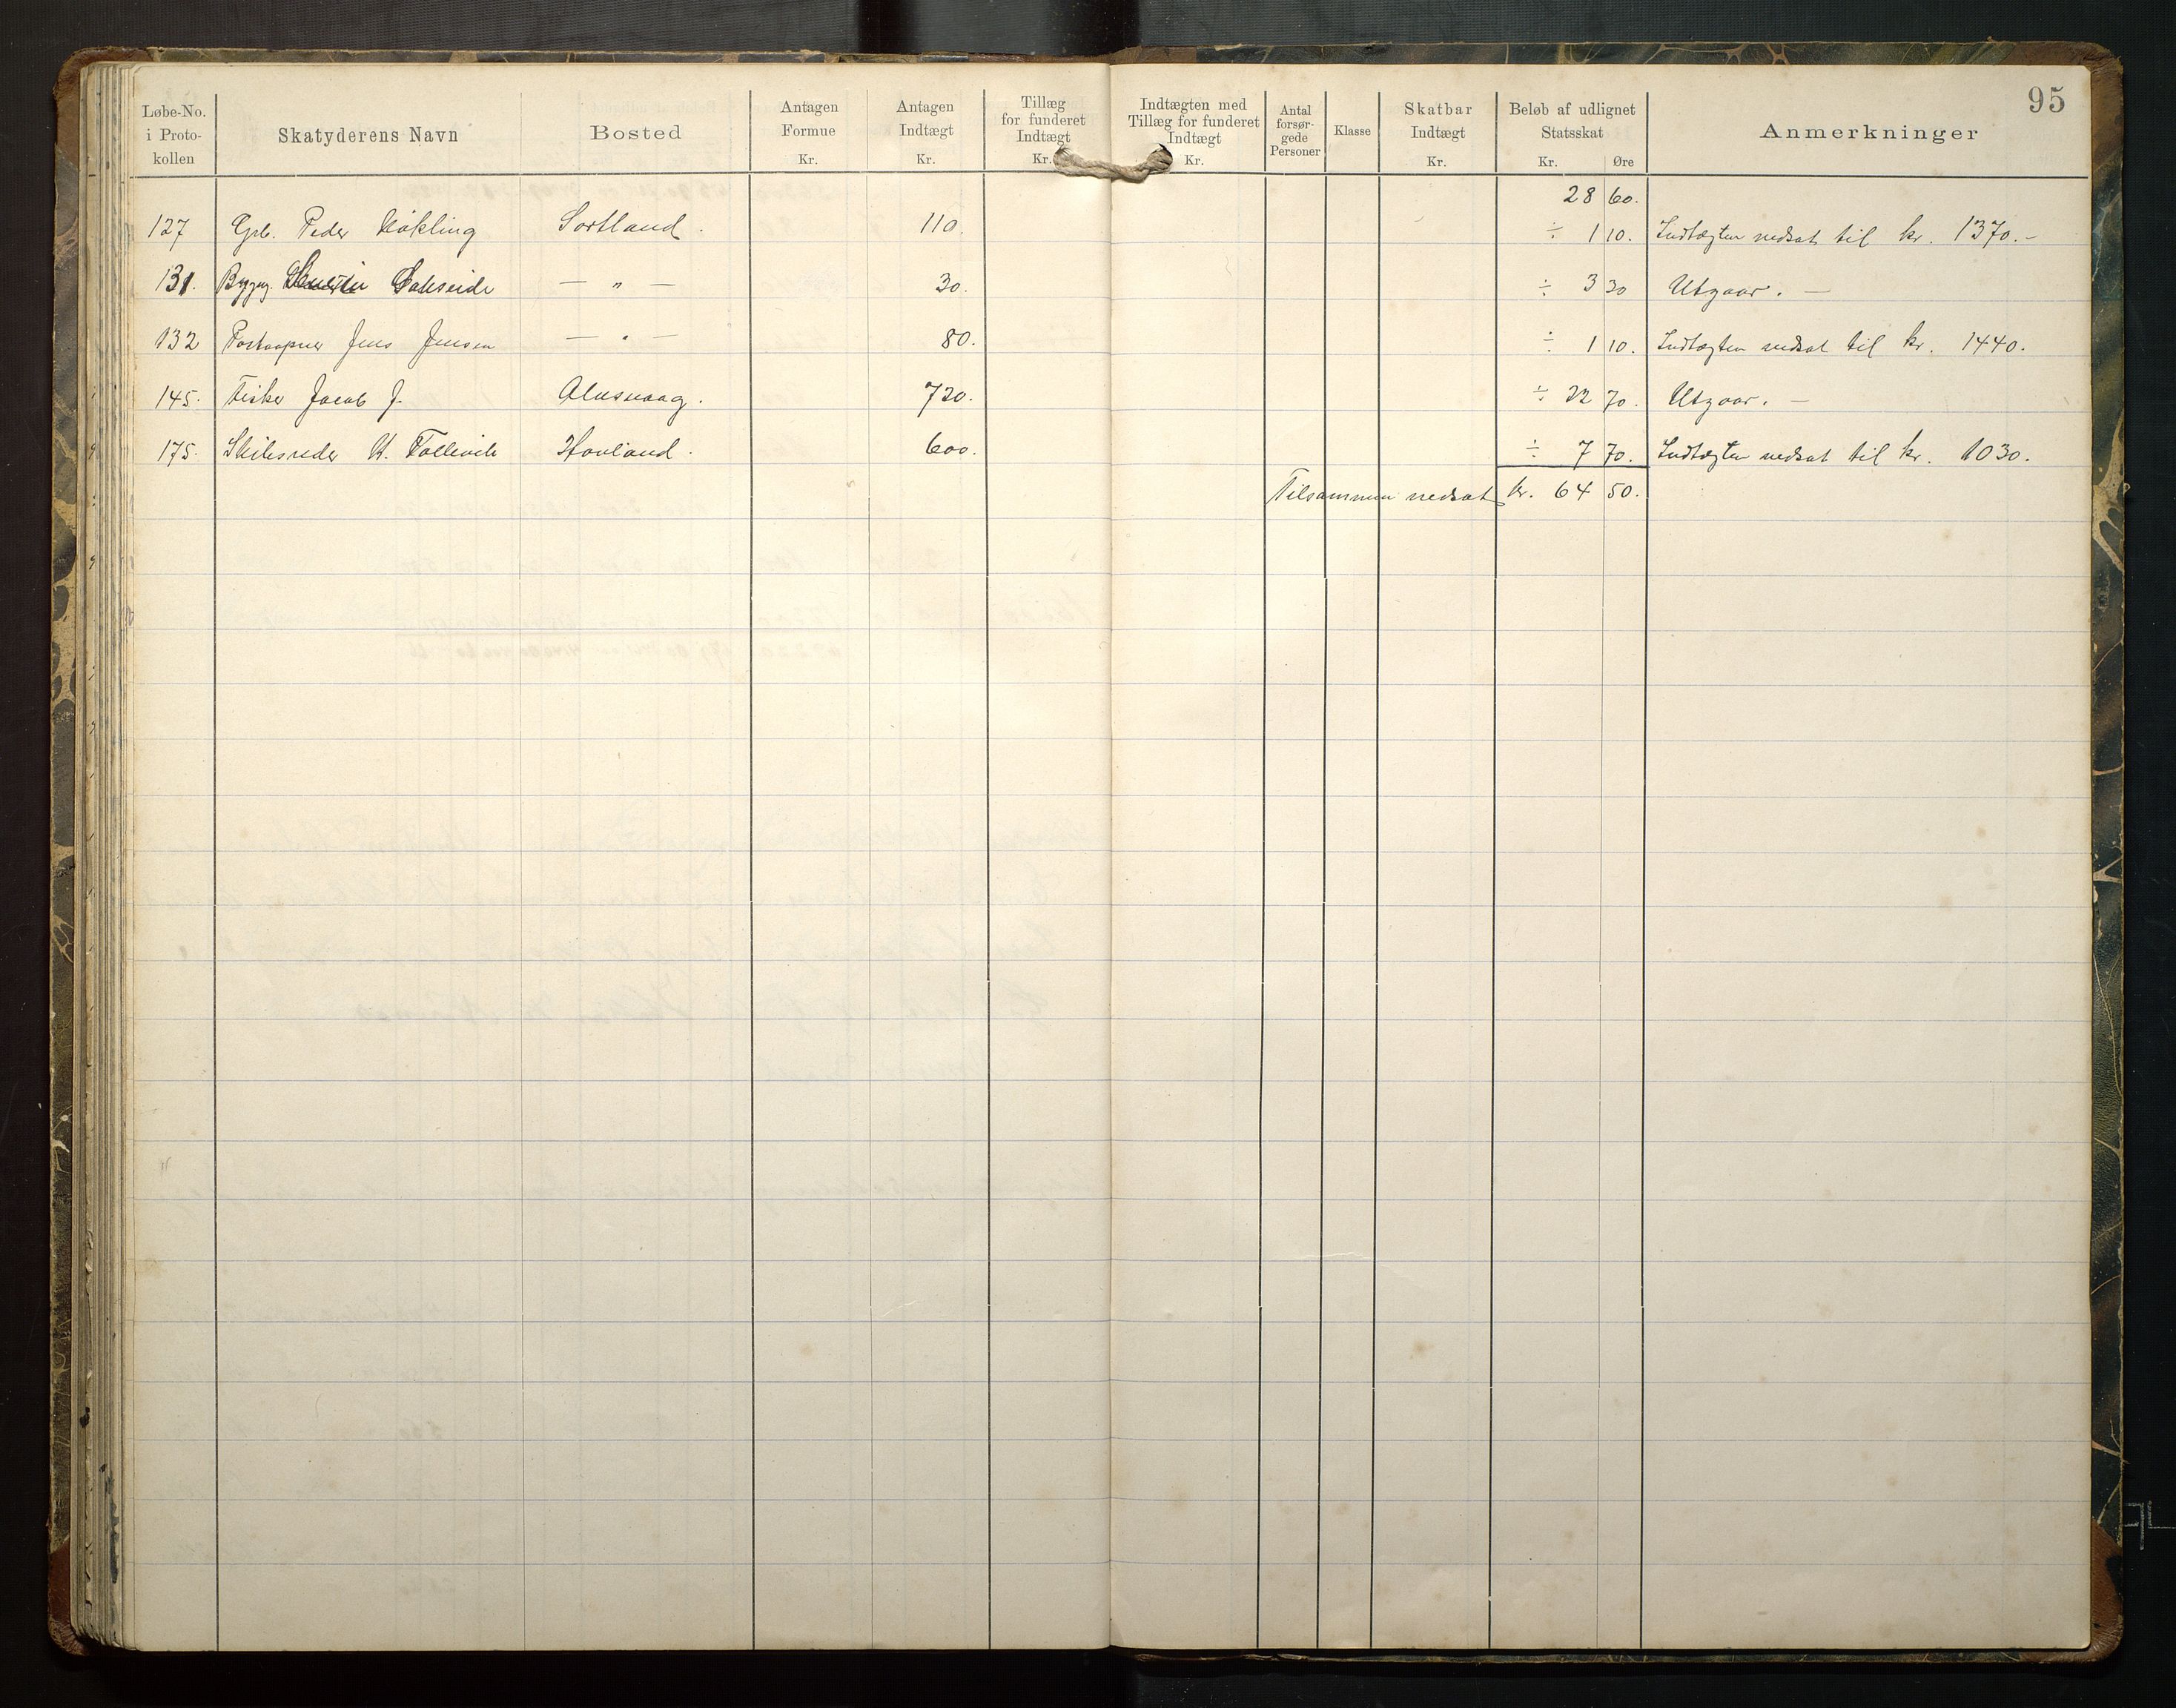 95
Løbe-No. i Proto-kollen Skatyderens Navn Bosted Antagen Formue Kr. Antagen Indtægt Kr. Tillæg for funderet Indtægt Kr. Indtægten med Tillæg for funderet Indtægt Kr. Antal forsør-gede Personer Klasse Skatbar Indtægt Kr. Beløb af udlignet Statsskat Kr. Øre Anmerkninger
28 60.
127 Grb. Peder Kökling Sortland. 110. ÷ 1 10. Indtægten nedsat til kr. 1370.-
131. Bygg. — " — 30. ÷ 3 30 Utgaar. —
132 Postaapner Jens Jensen — " — 80. ÷ 1 10. Indtægten nedsat til kr. 1440.
145. Fisker Jacob J. 720. ÷ 22 70. Utgaar. —
175. Skibsreder Hovland. 600. ÷ 7 70. Indtægten nedsat til kr. 1030.
Tilsammen nedsat kr. 64 50.